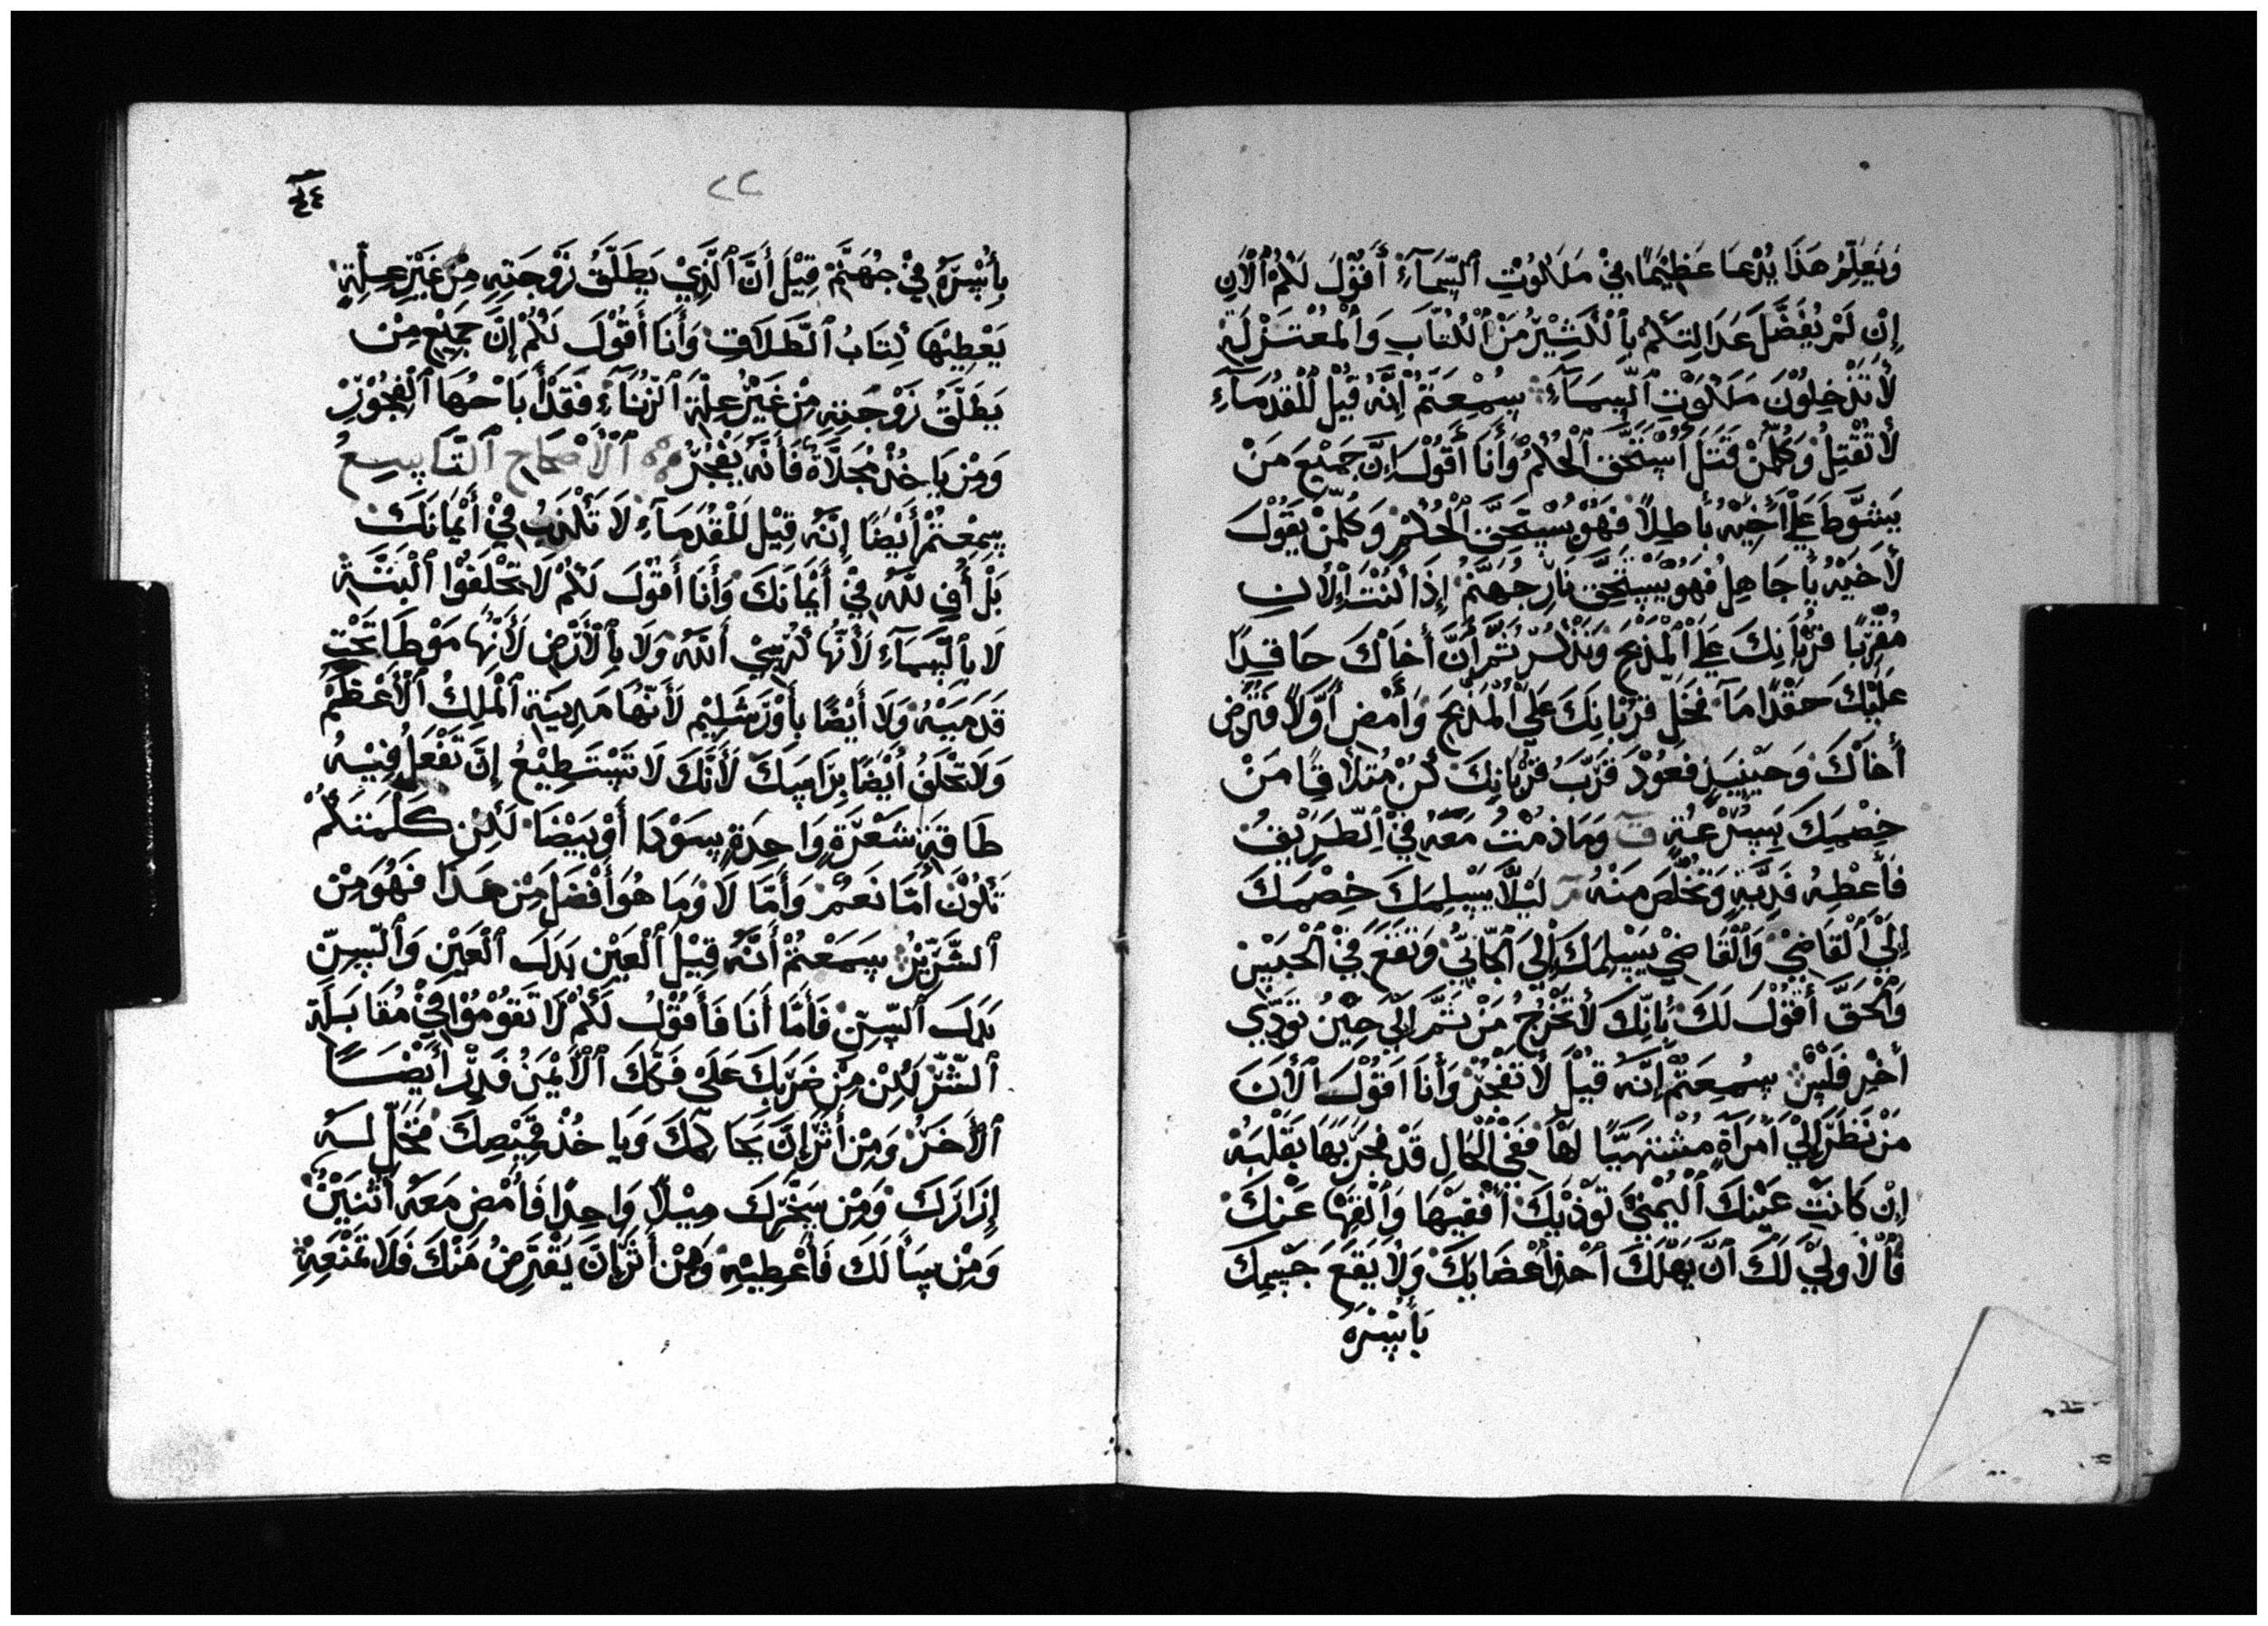 وَيَعَلِّمُ هَذَا يُدْعَا عَظِيْمًا فِيْ مَلَكُوْتِ ٱلسَّمَآءِ أَقُوْلَ لَكُمْ ٱلْأَنِ
إِنْ لَمْ يُفَضَّلَ عَدَالِتَكُمْ بِٱلْكَثِيْرُ مَنْ ٱلْكُتَّابِ وَٱلْمُعْتَزِلَةِ
لَأ تَدْخِلُوْنَ مَلَكُوَتِ ٱلسَّمَآءِ سُمِعَتَمْ اِنَّهُ قُيْلُ لْلْقُدُمَآءِ
لأ تَقْتِلُ وَكُلِّمَنْ قَتَلَ اسْتَحَّق ٱلْحُكْمُ وَأَنَا أَقُوْلَ اِنَّ جَمَيْعَ مَنْ
يَسَّوَطَ عَلَي أَخِيْهُ بأطِلِأً فَهُوْ يُسْتَحِقَّ ٱلْحُكْمْ وَكُلِّمَنْ يَقُوْلَ
لأَخَيْهْ يٌأ جَاهِلُ فَهُوَ يَسْتَحِّقَ نَارِ جُهَنَّمْ إِذَا كُنْتَ اَلْأنِ
مُقَرِّبًا قُرْبَانِكَ عَلَي ٱلْمَذْبَحْ وَتَذْكُرْ ثَمَّ أَنَّ أَخَاْكَ حَاقِدًا
عَلَيْكَ حَقْدًا مَآ فَخَلِ قُرْبَانِكَ عَلَي ٱلْمَذْبَحْ وَأَمْضِ أَوَّلاً وَتَرَضَ
أَخَاْكَ وَحَيْنِيَذٍ فَعُوْدْ قَرَّبَ قُرْبَانِكَ كُنْ مُتلأْقِيًا مَنْ
خِصْمِكَ بَسُرْعَةٍ وَمَاذمْتُ مَعَهُ فِيْ اِلطَّرَيْقِ
فَأَعْطِهُ فَدِيَّةٍ وَتْخَلَصَ مِنْهُ لَيْلَّا يَسْلِمَكَ خِصْمَكَ
إِلَيَ ٱلْقَاضِيْ وَٱلْقَاضِيْ يَسْلِمَكَ اِلَيَ ٱلْجَّانِيُ وَتَقَعَ فِيْ ٱلْحَبْسْ
وَٱلْحَقَّ أَقُوْلَ لَكَ بأِنّكَ لأتَخْرُجُ مَنْ ثَمَّ اِلَي حِيْنَ تُوَدِّي
أَخْرِ فَلْسْ سُمِعَتُمْ إِنَّهُ قْيْلُ لأ تَفْجُرْ وَأَنَا اَقُوْلَ ٱلْأَنَ
مَنْ نَظَرَ إِلَيْ اَمْرَأَةٍ مُشْتِهَيًا لهَأ فَفِيْ ٱلْحَالِ قَدْ فَجَرَ بَهَا بَقَلْبَهُ
إِنْ كَانَتِ عَيْنِكَ ٱلْيُمْنَى تَوْذْيِكَ أَفْقِيْهَا وَٱلْقَهِا عَنْكَ
فَٱلْأوْلِيْ لَكَ اَنَّ يَهْلَكَ اَحْدِ أَعْضَايَكْ وَلأ يَقَعَ جَسِمِكَ
بأَسْرَهُ
٤٤
٢٢
بِأَسْرَهُ فِيْ جُهَنَّمْ قِيْلَ أَنَّ ٱلَّذِيْ يَطَلَّقُ زَوْجَتِهِ مِنْ غَيْرِ عِلَّةٍ
يَعْطِيْهَا كِتَابُ ٱلطَّلَاقِ وَأَنَا أَقُوْلَ لَكُمْ إِنَّ جَمِيْعَ مِنْ
يَطَلَّقُ زَوْجَتِهِ مِنْ غَيْرْ عِلَّةِ ٱلزِّنَآءِ فَقَدْ أَبَاْحُهَا ٱلْفِجُوْرْ
وَمِنْ يَاخُذْ مُخَلَّاةً فَأَنَّهُ يَفْجُرْ ٱلْأَصْحَاحِ ٱلتَّاسِعُ
سِمِعْتُمْ أَيْضًا إِنَّهُ قِيْلَ لَلْقُدَمَآءِ لَا تَكْذِبُ فِيْ أَيْمَانَكَ
بَلْ أَوْفِ للّٰهِ فِيْ أَيْمَانَكَ وَأَنَا أَقُوْلَ لَكُمْ لَا تَحْلَفُوْا ٱلْبَتَّةِ
لَا بِٱلْسَّمَآءِ لَأَنَّهَا كُرْسِيْ أَللّٰهُ وَلَا بِٱلْأَرْضِ لَأَنَّهَا مَوْطَا تَحْتِ
قَدَمَيْهُ وَلَا أَيْضًا بِأُوْرَشَلِيْمِ لَأَنَّهَا مَدِيَنَةِ ٱلْمَلِكُ ٱلْأَعْظَمْ
وَلَا تَحْلَفُ أَيْضًا بِرَأسِكَ لَأَنَّكَ لَا تَسْتَطِيْعُ إِنَّ تَفْعَلُ فِيْهِ
طَاقَةٍ شَعْرَةٍ وَاحِدَةٍ سَوْدَا أَوْ بَيْضَا لَكِنْ كَلِمَتَكُمْ
تَكُوْنَ أَمَّا نَعَمْ وَأَمَّا لَا وَمَا هُوَ أَفْضَلَ مِنْ هَذَا فَهُوَ مِنْ
ٱلشَّرِّيْرُ سَمَعْتُمْ أَنَّهُ قِيْلَ ٱلْعَيْنِ بَدَلَ ٱلْعَيْنِ وَٱلسِّنِّ
بَدَلَ ٱلسِّنْ فَأَمَّا أَنَا فَأَقُوْلُ لَكُمْ لَا تَقُوْمُوْا فِيْ مُقَابَلَةِ
ٱلشَّرْ لَكِنْ مِنْ ضَرَبَكَ عَلَى فَكِّكَ ٱلْأَيْمَنُ فَدِرْ أَيْضًا
ٱلْأَخَرْ وَمِنْ أَثَرَ إِنَّ يَحَاكِمَكَ وَيَاخُذْ قَمِيْصِكَ فَخَلِّ لَهُ
إِزَارَكَ وَمِنْ سَخَّرَكَ مِيْلًا وَاحِدًا فَأَمْضِ مَعَهُ أَثْنَيْنْ
وَمِنْ سَأَلَكَ فَأَعْطِيْهِ وَمِنْ أَثَرَ إِنَّ يَقْتَرِضُ مَنْكَ فَلَا تَمْنَعِهِ